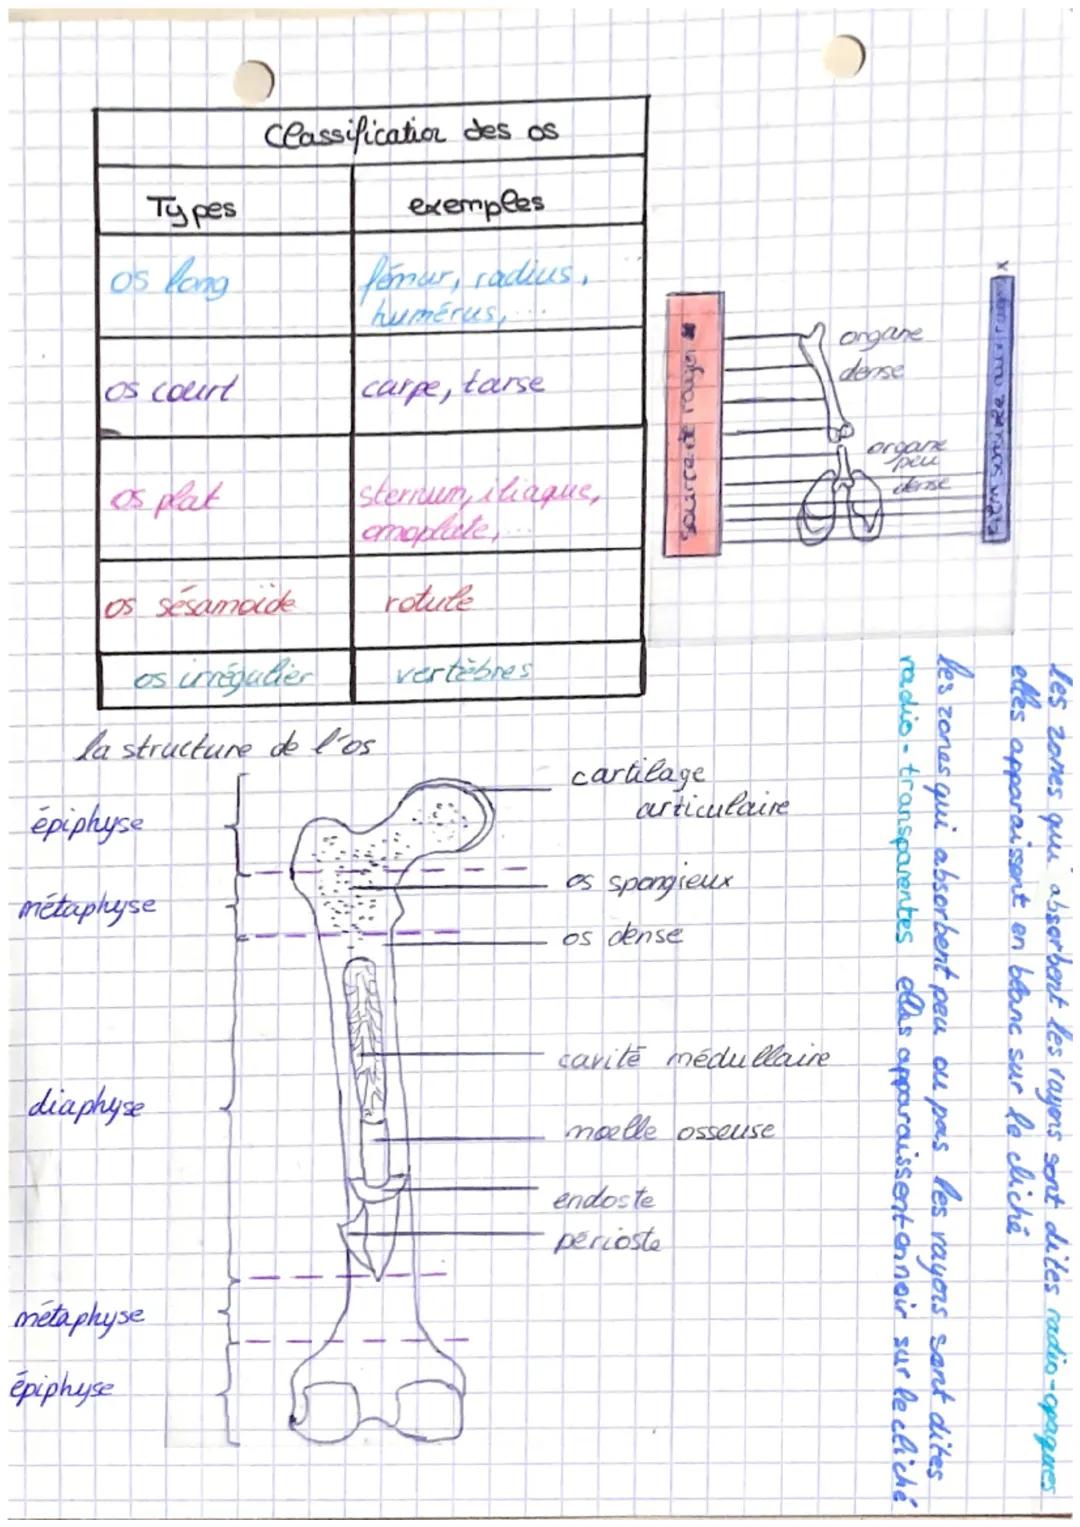 Classification des os
Types
exemples
os long
fémur, radius,
humérus, ...
os court
carpe, tarse
os plat
sternum, iliaque,
omoplate, ...
os sésamoïde
rotule
os irrégulier
vertèbres
source de rayon x
organe
dense
organe
peu
dense
film sensible aux rayon x
Les zones qui absorbent les rayons sont dites radio-opaques
elles apparaissent en blanc sur le cliché
les zones qui absorbent peu ou pas les rayons sont dites
radio-transparentes elles apparaissent en noir sur le cliché
la structure de l'os
épiphyse
métaphyse
diaphyse
métaphyse
épiphyse
cartilage
articulaire
os spongieux
os dense
cavité médullaire
moelle osseuse
endoste
périoste